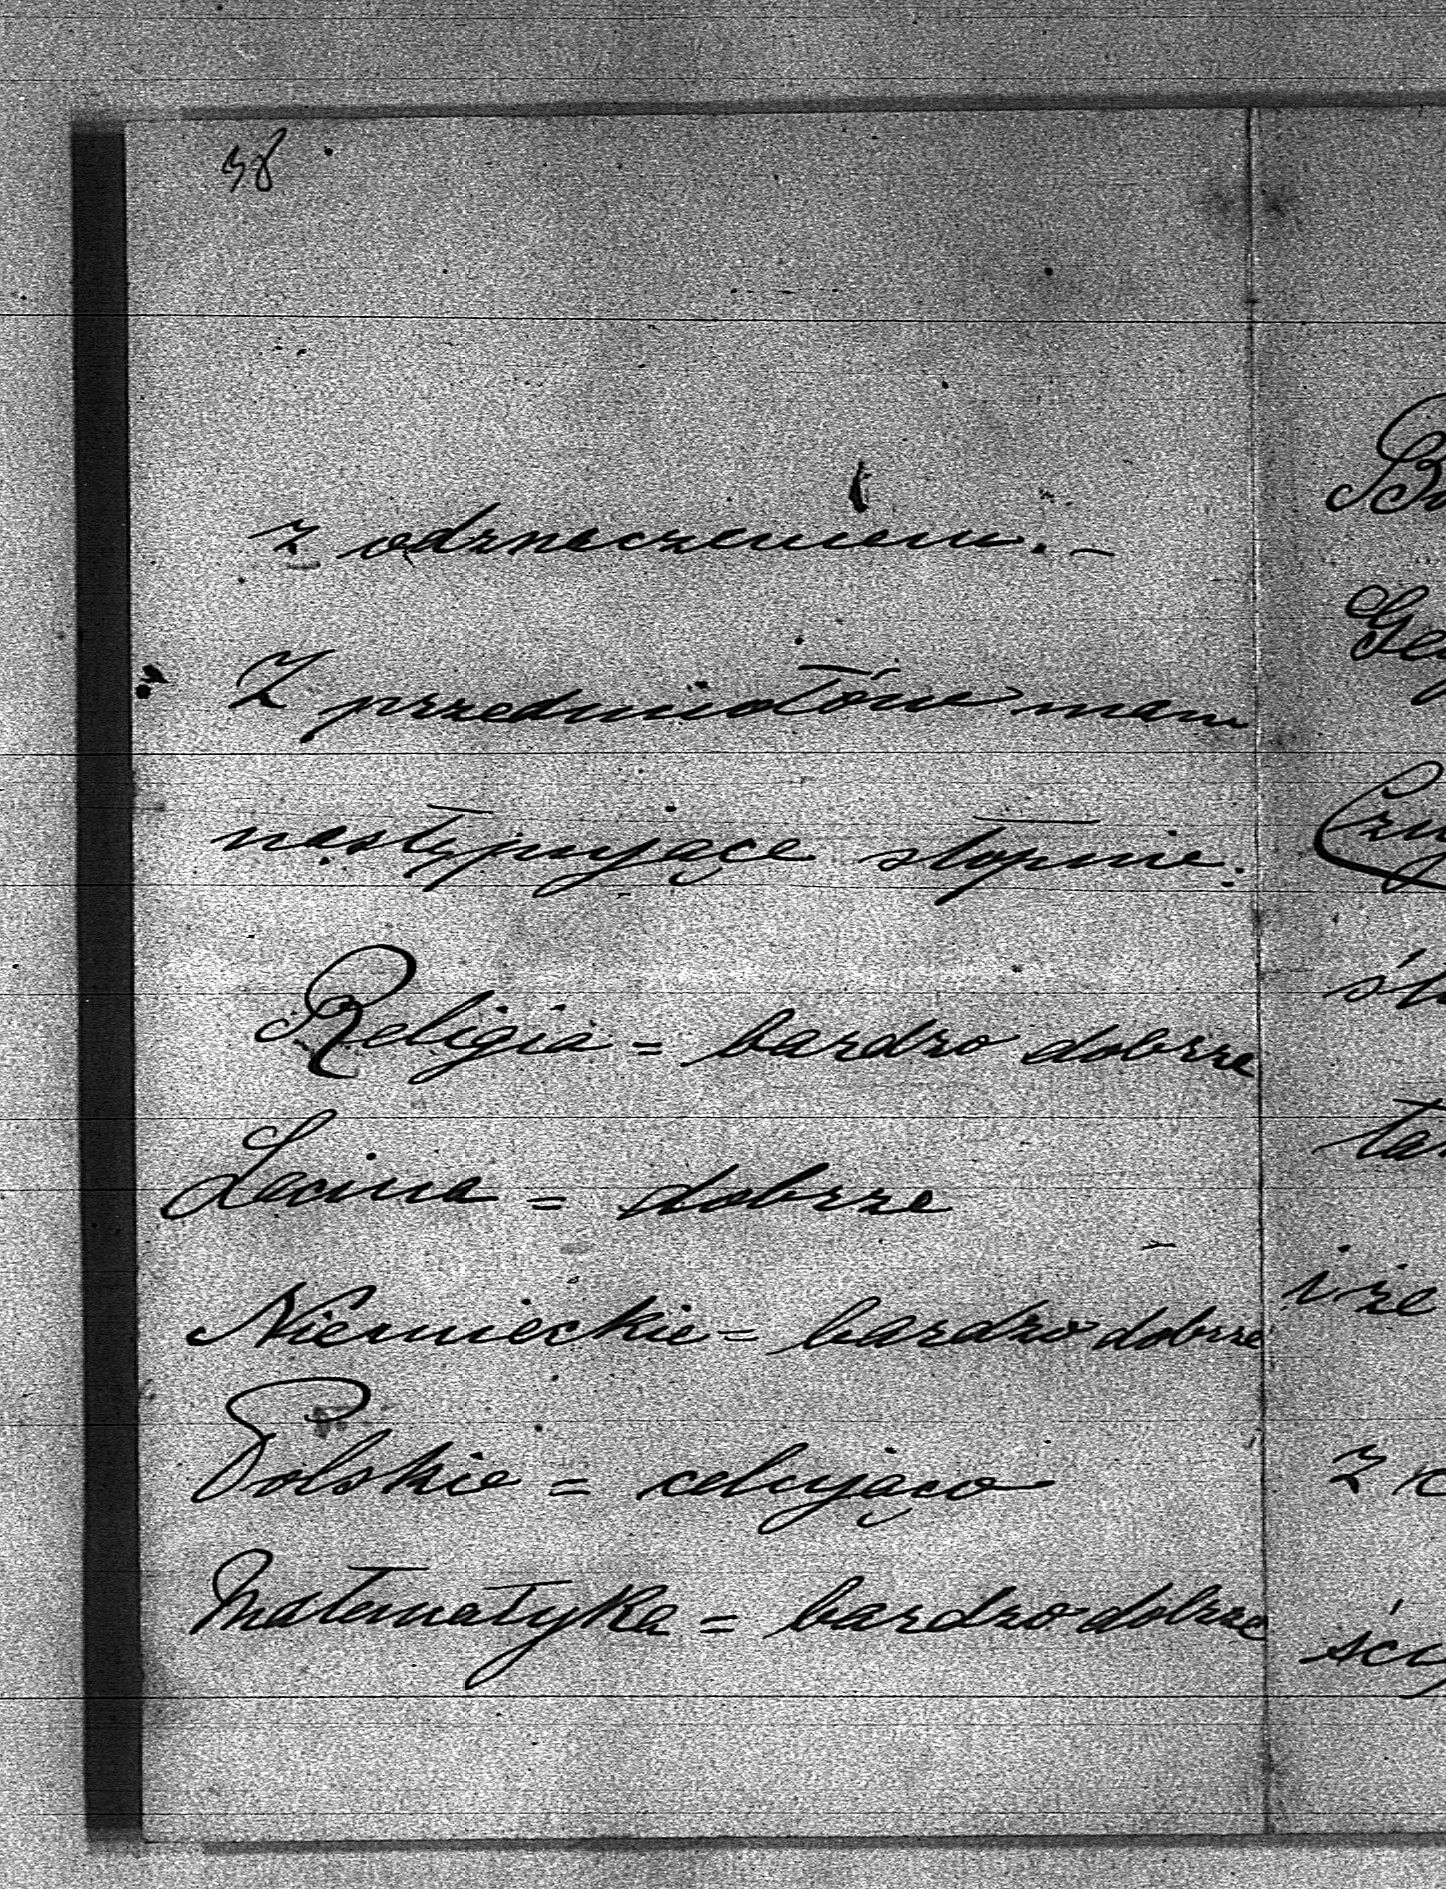 38
z odznaczeniem. –
Z przedmiotów mam
następujące stopnie:
Religia = bardzo dobrze
Łacina = dobrze
Niemieckie = bardzo dobrze
Polskie = celująco
Matematyka = bardzo dobrze
i że